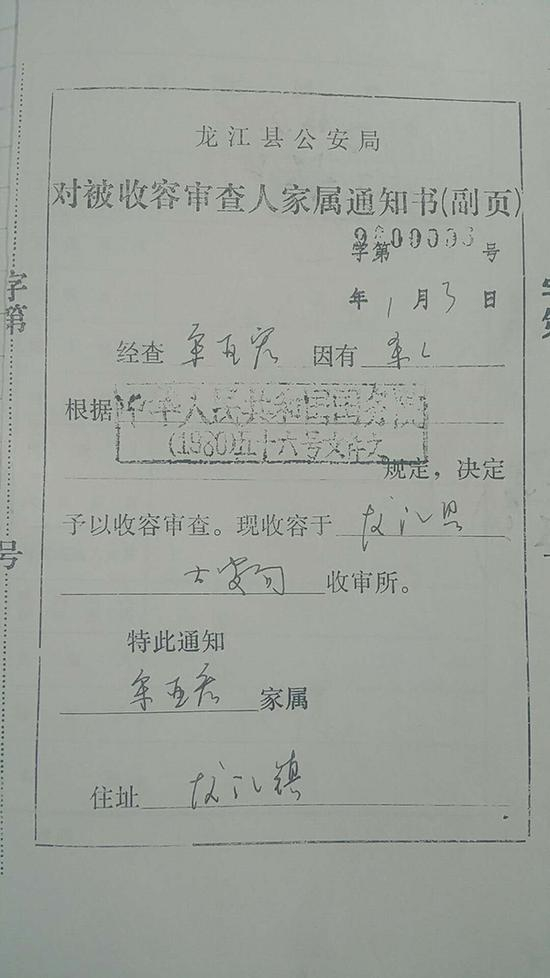 龙江县公安局
对被收容审查人家属通知书(副页)
字第 号
学第 号
年 1 月 3 日
经查 因有
根据 中华人民共和国国务院
(1980)五十六号文件之
规定，决定
予以收容审查。现收容于 龙江县
公安局 收审所。
特此通知
家属
住址 龙江镇